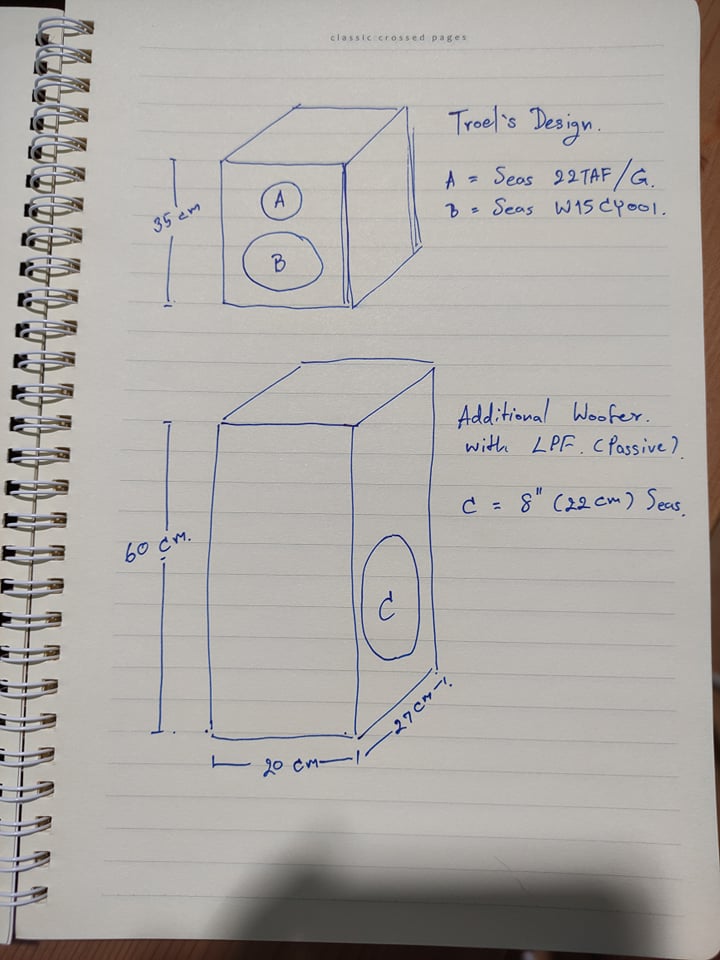 classic:crossed pages
Troel's Design.
A = Seas 22TAF/G.
B = Seas W15CY001.
35 cm
A
B
Additional Woofer.
with LPF. (Passive).
C = 8" (22 cm) Seas.
60 cm.
C
27 cm
20 cm